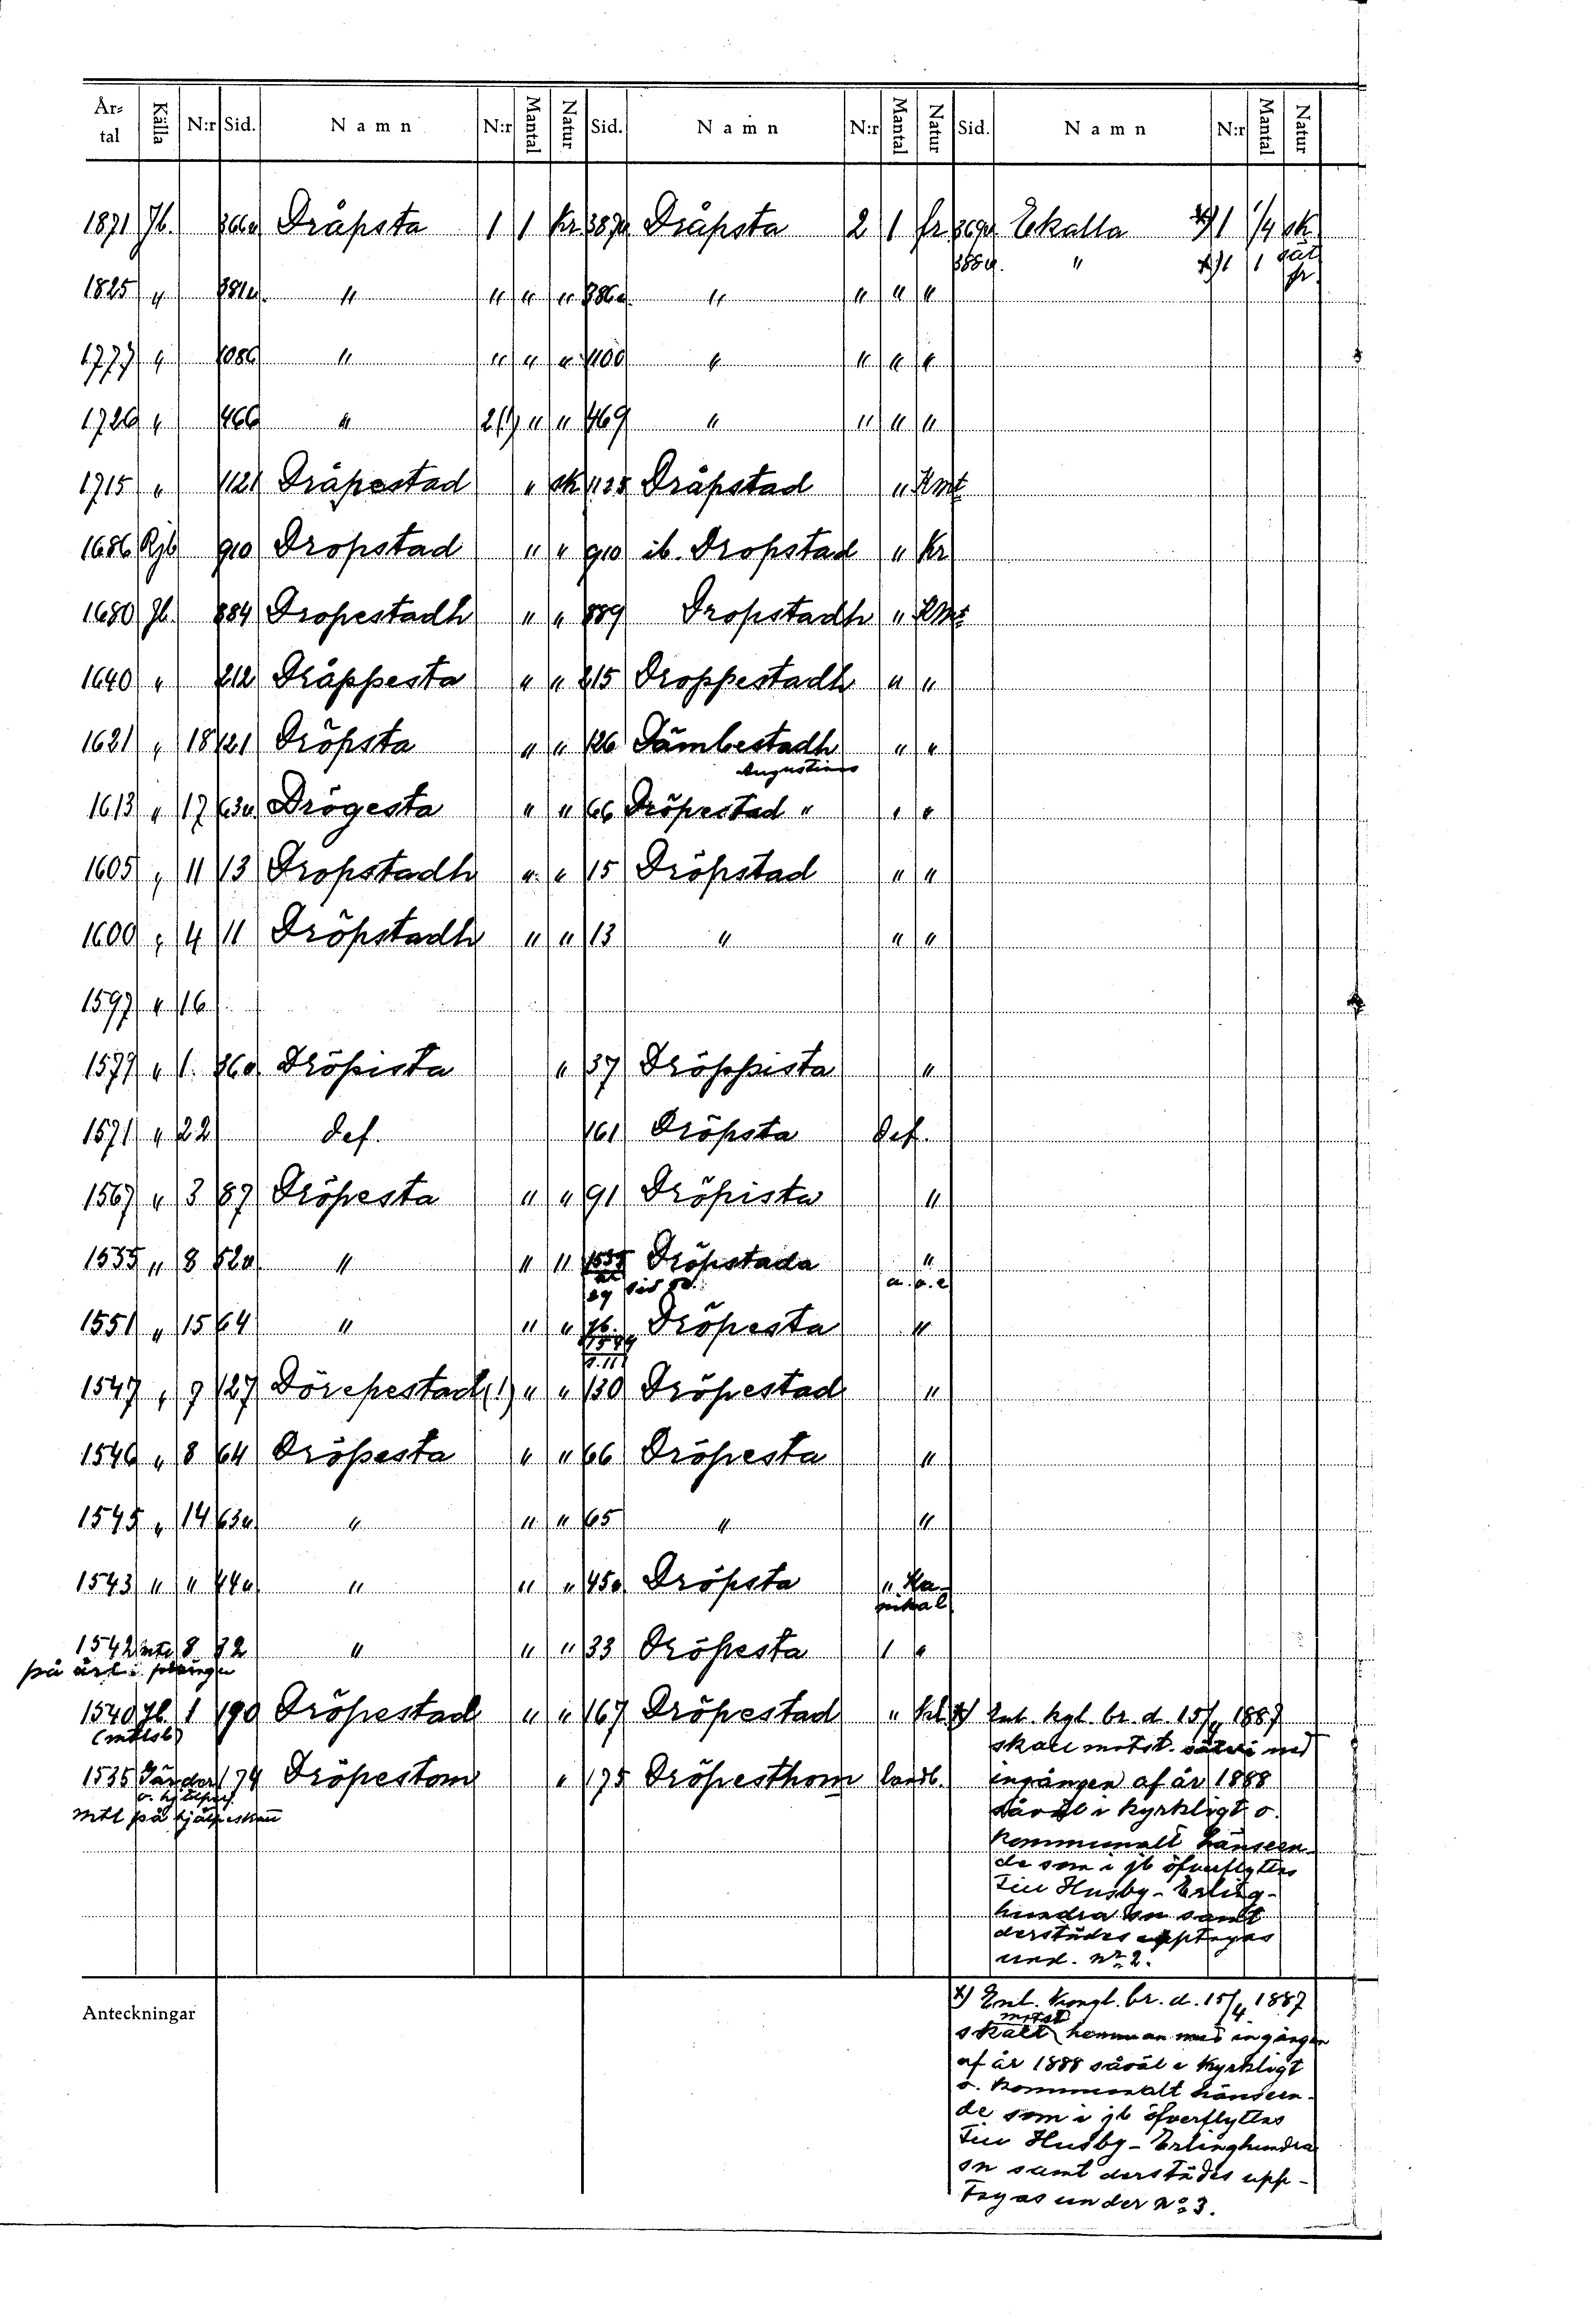 År-tal Källa N:r Sid. Namn N:r Mantal Natur Sid. Namn N:r Mantal Natur Sid. Namn N:r Mantal Natur
1871 Jb. 366a Dråpsta 1 1 kr 387a Dråpsta 2 1 fr 369a Ekalla 1 1/4 sk
388a. " x) 1 1 sät fr
1825 " 381a. " " " " 386a. " " " "
1777 " 1086 " " " " 1100 " " " "
1726 " 466 " 2(!) " " 469 " " " "
1715 " 1121 Dråpestad " sk 1135 Dråpstad " Kmt
1686 Rjb 910 Dropstad " " 910 ib. Dropstad " Kr
1680 Jb. 884 Dropestadh " " 889 Dropstadh " Kmt
1640 " 212 Dråppesta " " 215 Droppestadh " "
1621 " 18 121 Dröpsta " " 126 Dämbestadh " "
Augustinus
1613 " 17 63a Drögesta " " 66 Dröpestad " " "
1605 " 11 13 Dropstadh " " 15 Dröpstad " "
1600 " 4 11 Dröpstadh " " 13 " " "
1597 " 16
1579 " 1. 36a Dröpista " 37 Dröppista "
1571 " 22 def. 161 Dröpsta def.
1567 " 3 87 Dröpesta " " 91 Dröpista "
1555 " 8 52a " " " Dröpstada "
a. o. e
1551 " 15 64 " " " Dröpesta "
1547 " 9 127 Dörepestad (!) " " 130 Dröpestad "
1546 " 8 64 Dröpesta " " 66 Dröpesta "
1545 " 14 63a " " " 65 " "
1543 " " 44a " " " 45a Dröpsta " Ka-
nikal
1542 8 32 " " " 33 Dröpesta 1 "
på årl.
1540 Jb. 1 190 Dröpestad " " 167 Dröpestad " kl x) Enl. kgl. br. d. 15/4 1887
(mtlsb)
skall motst. säteri med
1535 174 Dröpestom " 175 Dröpesthom landb. ingången af år 1888
mtl på
såväl i kyrkligt o.
kommunalt hänseen-
de som i jb öfverflyttas
till Husby-Erling-
hundra sn samt
derstädes upptagas
und. No 2.
Anteckningar
x) Enl. Kongl. br. d. 15/4 1887
motst
skall hemman med ingången
af år 1888 såväl i kyrkligt
o. kommunalt hänseen-
de som i jb öfverflyttas
till Husby-Erlinghundra
sn samt derstädes upp-
tagas under No 3.